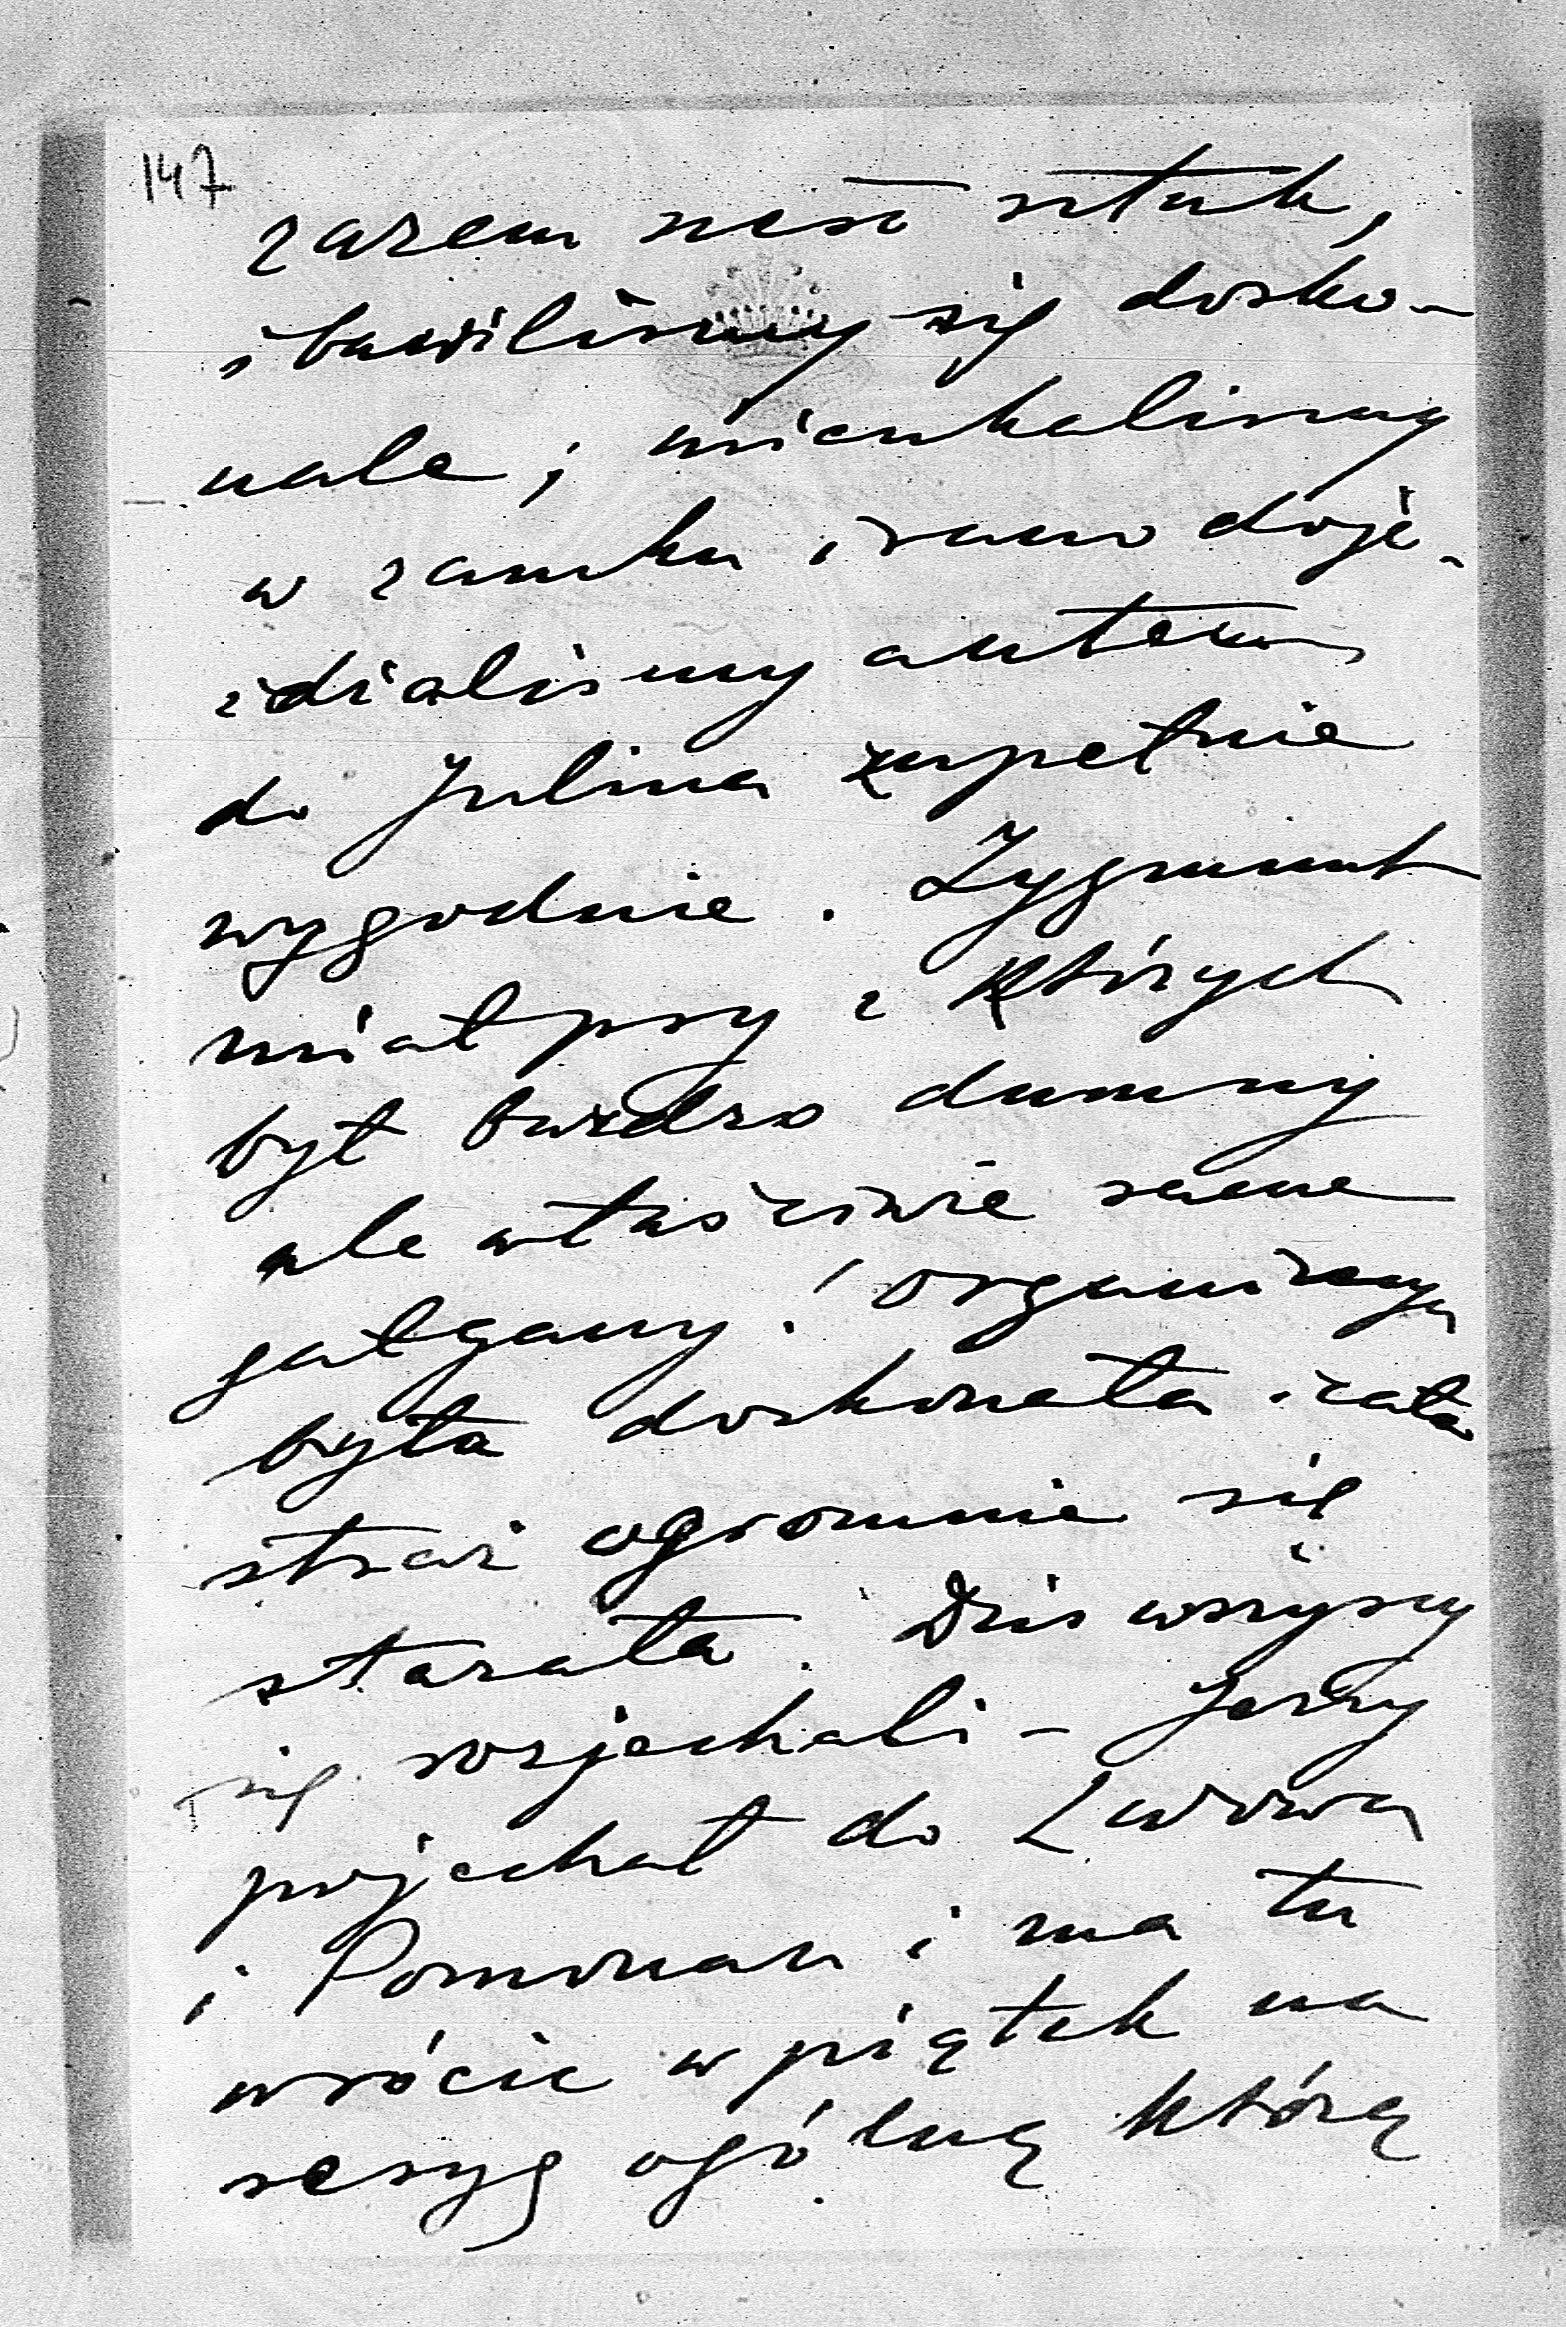 147
razem sześć sztuk,
i bawiliśmy się dosko-
nale; mieszkaliśmy
w zamku i rano doje-
żdżaliśmy autem
do Julina zupełnie
wygodnie. Zygmunt
miał psy z których
był bardzo dumny
ale właściwie same
gałgany! Organizacya
była doskonała i cała
straż ogromnie się
starała. Dziś wszyscy
się rozjechali – Jerzy
pojechał do Lwowa
i Pomorzan i ma tu
wrócić w piątek na
sesyę ogólną którą